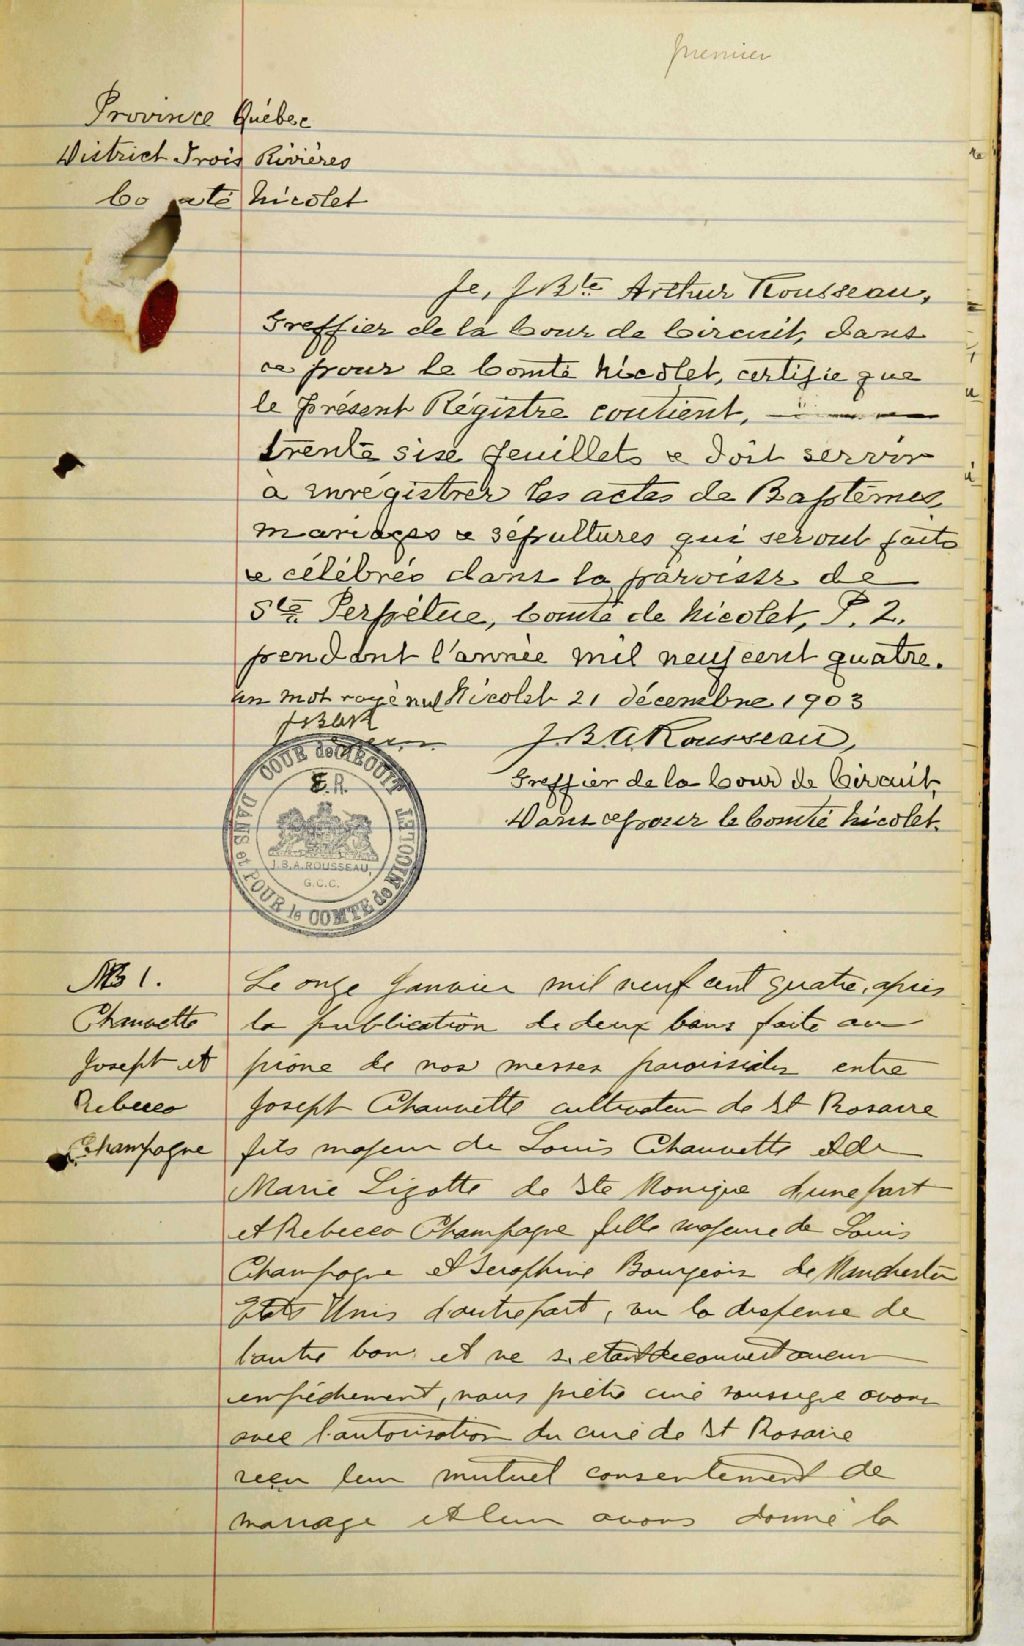 premier
Province Québec
District Trois Rivières
Co té Nicolet
Je, J Bte Arthur Rousseau,
Greffier de la Cour de Circuit, dans
& pour le Comté Nicolet, certifie que
le présent Régistre contient,
trente six feuillets & doit servir
à enrégistrer les actes de Baptêmes,
mariages & sépultures qui seront faits
& célébrés dans la paroisse de
Ste Perpétue, Comté de Nicolet, P. Q.
pendant l'année mil neuf cent quatre.
un mot rayé nul Nicolet 21 décembre 1903
JBAR
J.B.A Rousseau,
Greffier de la Cour de Circuit,
Dans & pour le Comté Nicolet.
COUR de CIRCUIT DANS et POUR le COMTE de NICOLET
E.R.
J.B.A. ROUSSEAU,
G.C.C.
M 1.
Chauvette
Joseph et
Rebecca
Champagne
Le onze Janvier mil neuf cent quatre, après
la publication de deux bans faite au
prône de nos messes paroissiales entre
Joseph Chauvette cultivateur de St Rosaire
fils majeur de Louis Chauvette et de
Marie Lizotte de Ste Monique d'une part
et Rebecca Champagne fille majeure de Louis
Champagne et Seraphine Bourgeois de Manchester
Etats Unis d'autre part, vu la dispense de
l'autre ban et ne s'etant decouvert aucun
empêchement, nous prêtre curé soussigné avons
avec l'autorisation du curé de St Rosaire
reçu leur mutuel consentement de
mariage et leur avons donné la